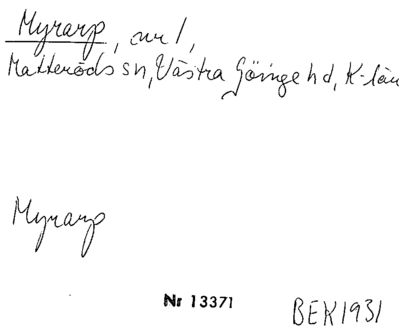 Myrarp, avr 1,
Matteröds sn, Västra Göinge hd, K-län
Myrarp
Nr 13371
BEK1931